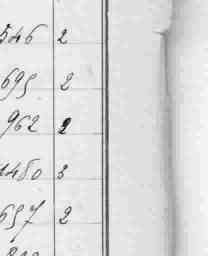 546 2
695 2
962 2
1480 3
657 2